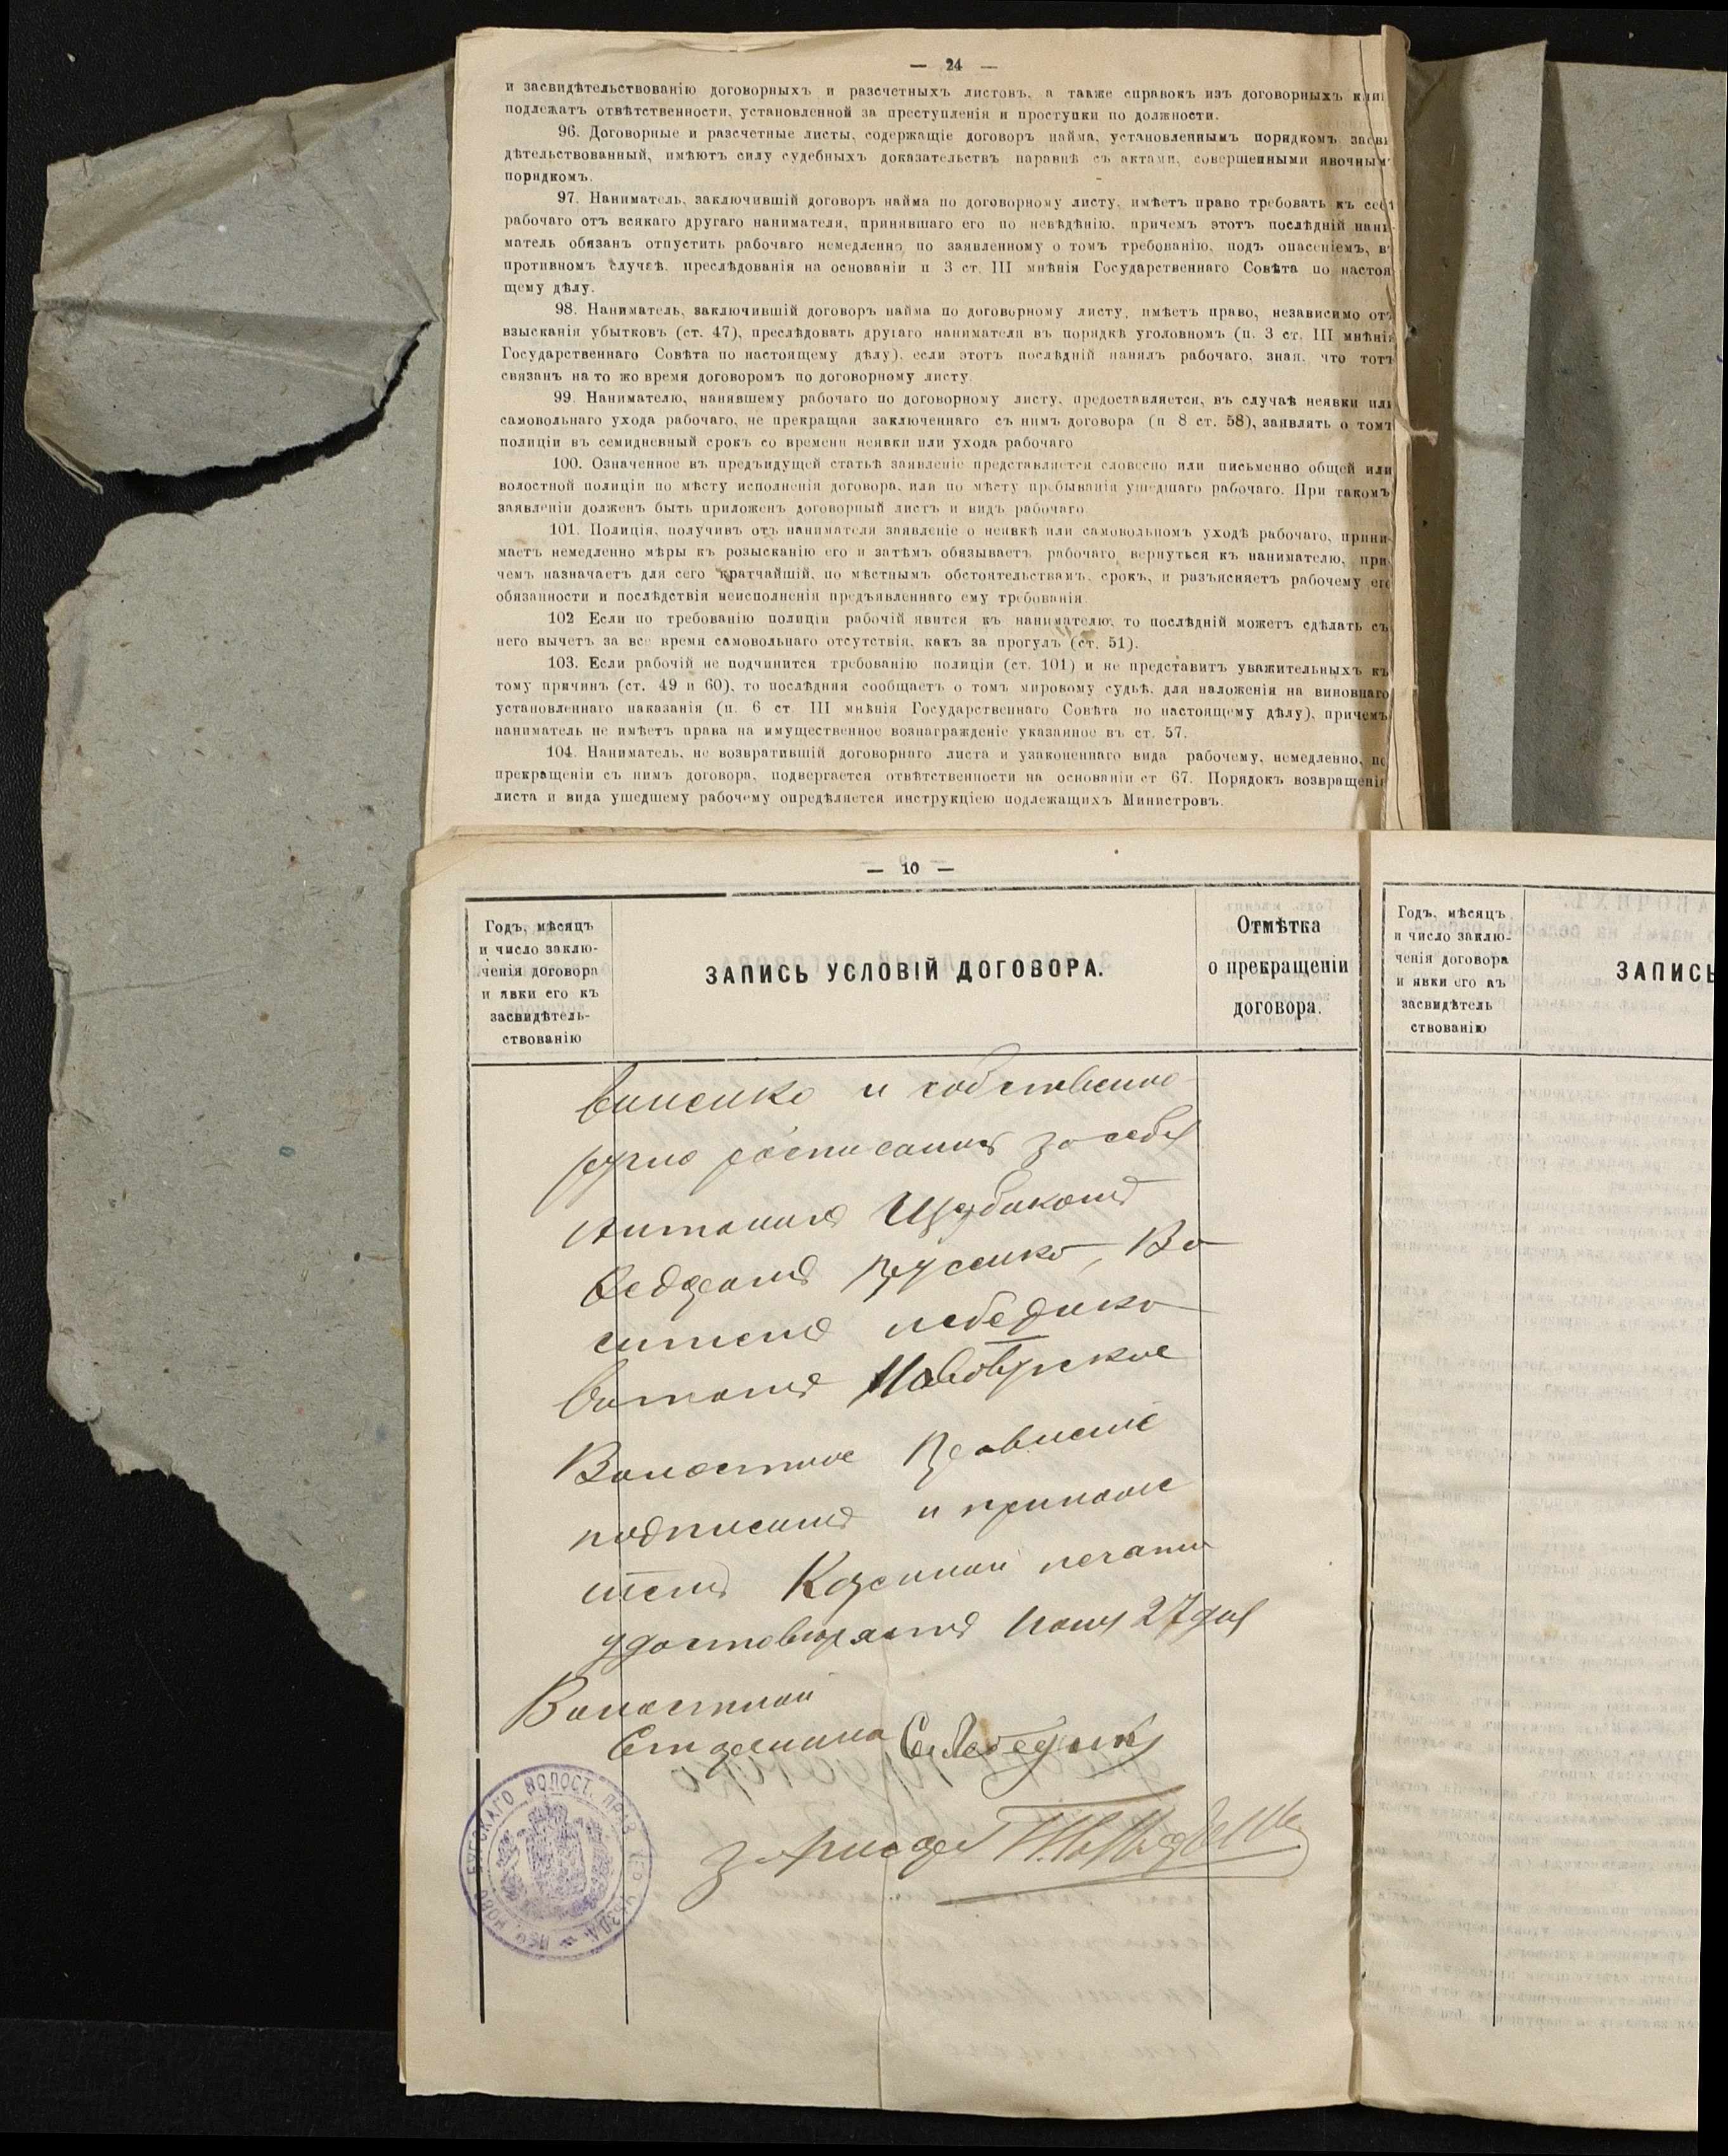 — 24 —
и засвидѣтельствованію договорныхъ и разсчетныхъ листовъ, а также справокъ изъ договорныхъ книг
подлежатъ отвѣтственности, установленной за преступленія и проступки по должности.
96. Договорные и разсчетные листы, содержащіе договоръ найма, установленнымъ порядкомъ засви
дѣтельствованный, имѣютъ силу судебныхъ доказательствъ наравнѣ съ актами, совершенными явочнымъ
порядкомъ.
97. Наниматель, заключившій договоръ найма по договорному листу, имѣетъ право требовать къ себѣ
рабочаго отъ всякаго другаго нанимателя, принявшаго его по невѣдѣнію, причемъ этотъ послѣдній нани-
матель обязанъ отпустить рабочаго немедленно, по заявленному о томъ требованію, подъ опасеніемъ, въ
противномъ случаѣ, преслѣдованія на основаніи п 3 ст. III мнѣнія Государственнаго Совѣта по настоя
щему дѣлу.
98. Наниматель, заключившій договоръ найма по договорному листу, имѣетъ право, независимо отъ
взысканія убытковъ (ст. 47), преслѣдовать другаго нанимателя въ порядкѣ уголовномъ (п. 3 ст. III мнѣнія
Государственнаго Совѣта по настоящему дѣлу), если этотъ послѣдній нанялъ рабочаго, зная, что тотъ
связанъ на то жо время договоромъ по договорному листу.
99. Нанимателю, нанявшему рабочаго по договорному листу, предоставляется, въ случаѣ неявки или
самовольнаго ухода рабочаго, не прекращая заключеннаго съ нимъ договора (п 8 ст. 58), заявлять о томъ
полиціи въ семидневный срокъ со времени неявки или ухода рабочаго
100. Означенное въ предъидущей статьѣ заявленіе представляется словесно или письменно общей или
волостной полиціи по мѣсту исполненія договора, или по мѣсту пребыванія ушедшаго рабочаго. При такомъ
заявленіи долженъ быть приложенъ договорный листъ и видъ рабочаго
101. Полиція, получивъ отъ нанимателя заявленіе о неявкѣ или самовольномъ уходѣ рабочаго, прини-
маетъ немедленно мѣры къ розысканію его и затѣмъ обязываетъ рабочаго вернуться къ нанимателю, при-
чемъ назначаетъ для сего кратчайшій, по мѣстнымъ обстоятельствамъ, срокъ, и разъясняетъ рабочему его
обязанности и послѣдствія неисполненія предъявленнаго ему требованія.
102 Если по требованію полиціи рабочій явится къ нанимателю, то послѣдній можетъ сдѣлать съ
него вычетъ за все время самовольнаго отсутствія, какъ за прогулъ (ст. 51).
103. Если рабочій не подчинится требованію полиціи (ст. 101) и не представитъ уважительныхъ къ
тому причинъ (ст. 49 и 60), то послѣдняя сообщаетъ о томъ мировому судьѣ, для наложенія на виновнаго
установленнаго наказанія (п. 6 ст. III мнѣнія Государственнаго Совѣта по настоящему дѣлу), причемъ
наниматель не имѣетъ права на имущественное вознагражденіе указанное въ ст. 57.
104. Наниматель, не возвратившій договорнаго листа и узаконеннаго вида рабочему, немедленно, по
прекращеніи съ нимъ договора, подвергается отвѣтственности на основаніи ст 67. Порядокъ возвращенія
листа и вида ушедшему рабочему опредѣляется инструкціею подлежащихъ Министровъ.
— 10 —
Годъ, мѣсяцъ
и число заклю-
ченія договора
и явки его къ
засвидѣтель-
ствованію
ЗАПИСЬ УСЛОВІЙ ДОГОВОРА.
Отмѣтка
о прекращеніи
договора.
и собственно
ручно росписания за себя
Антония
Ва
силия Лебедика
Новобугское
Волостное Правление
подписания и прилож
казенной печати
удостоверяетъ Июня 27 дня
Волостной
Старшина С Лебедик
За писаря
НОВО-БУГСКАГО ВОЛОСТ. ПРАВ. УѢЗДА
Годъ, мѣсяцъ
и число заклю-
ченія договора
и явки его къ
засвидѣтель
ствованію
ЗАПИСЬ